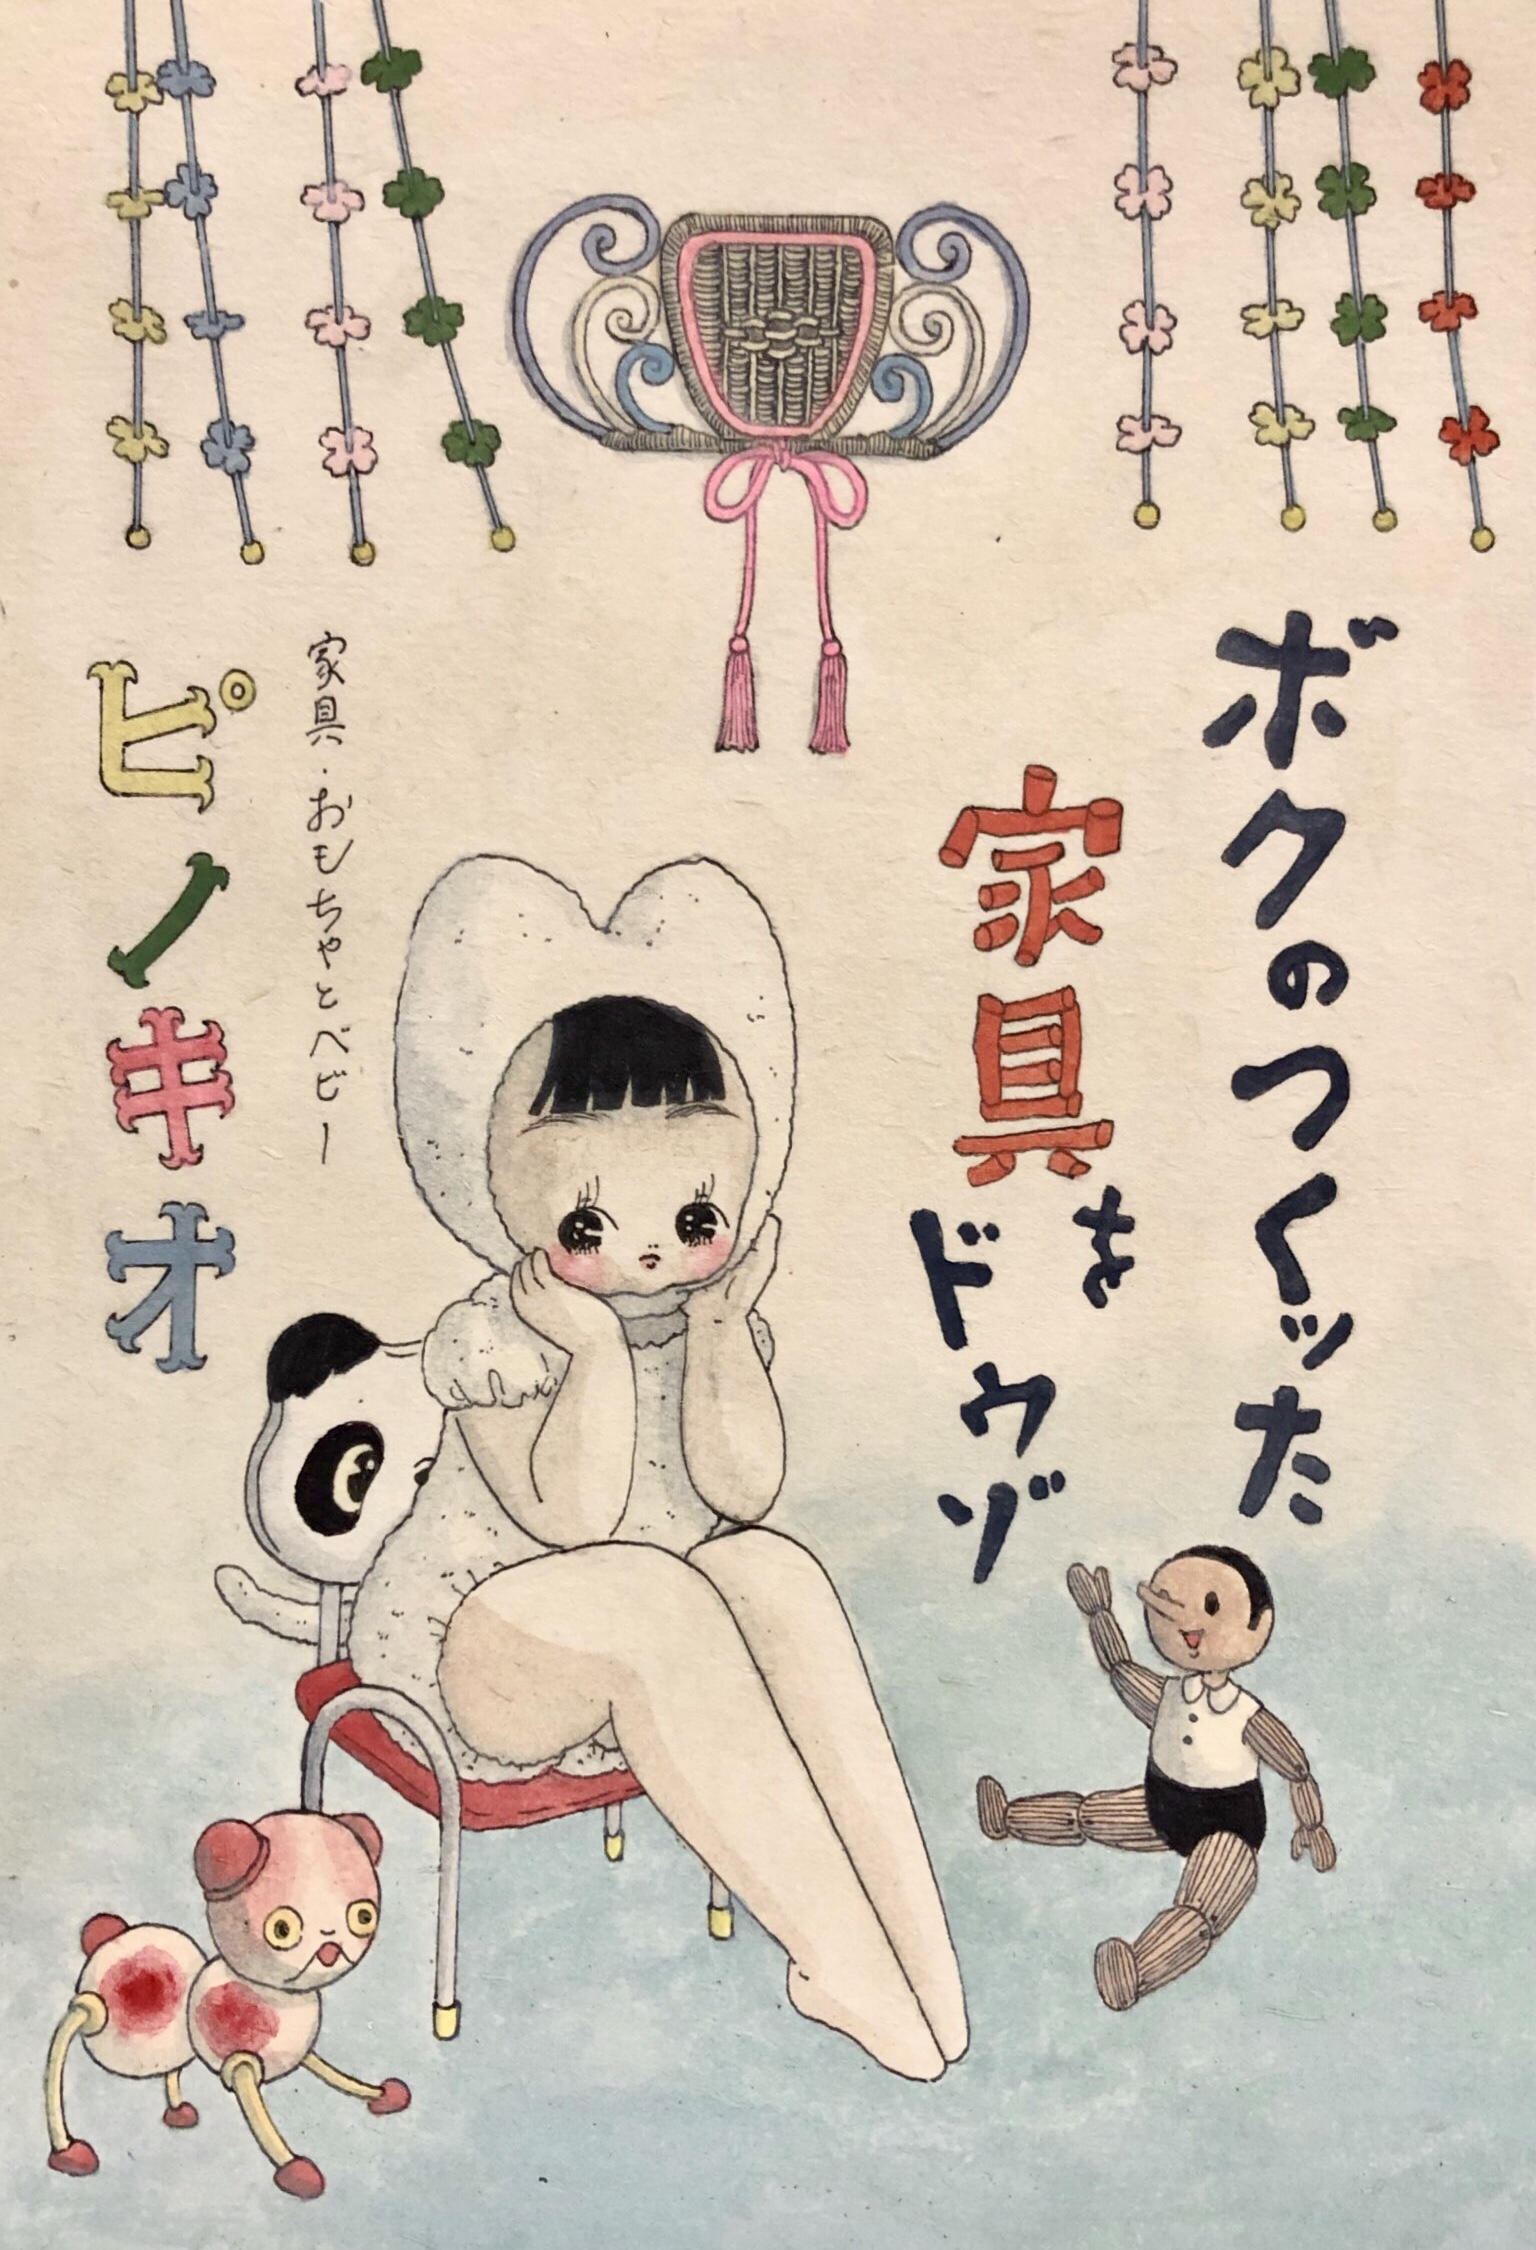 ボクのつくッた
家具を
ドウゾ
家具・おもちゃとベビー
ピノキオ